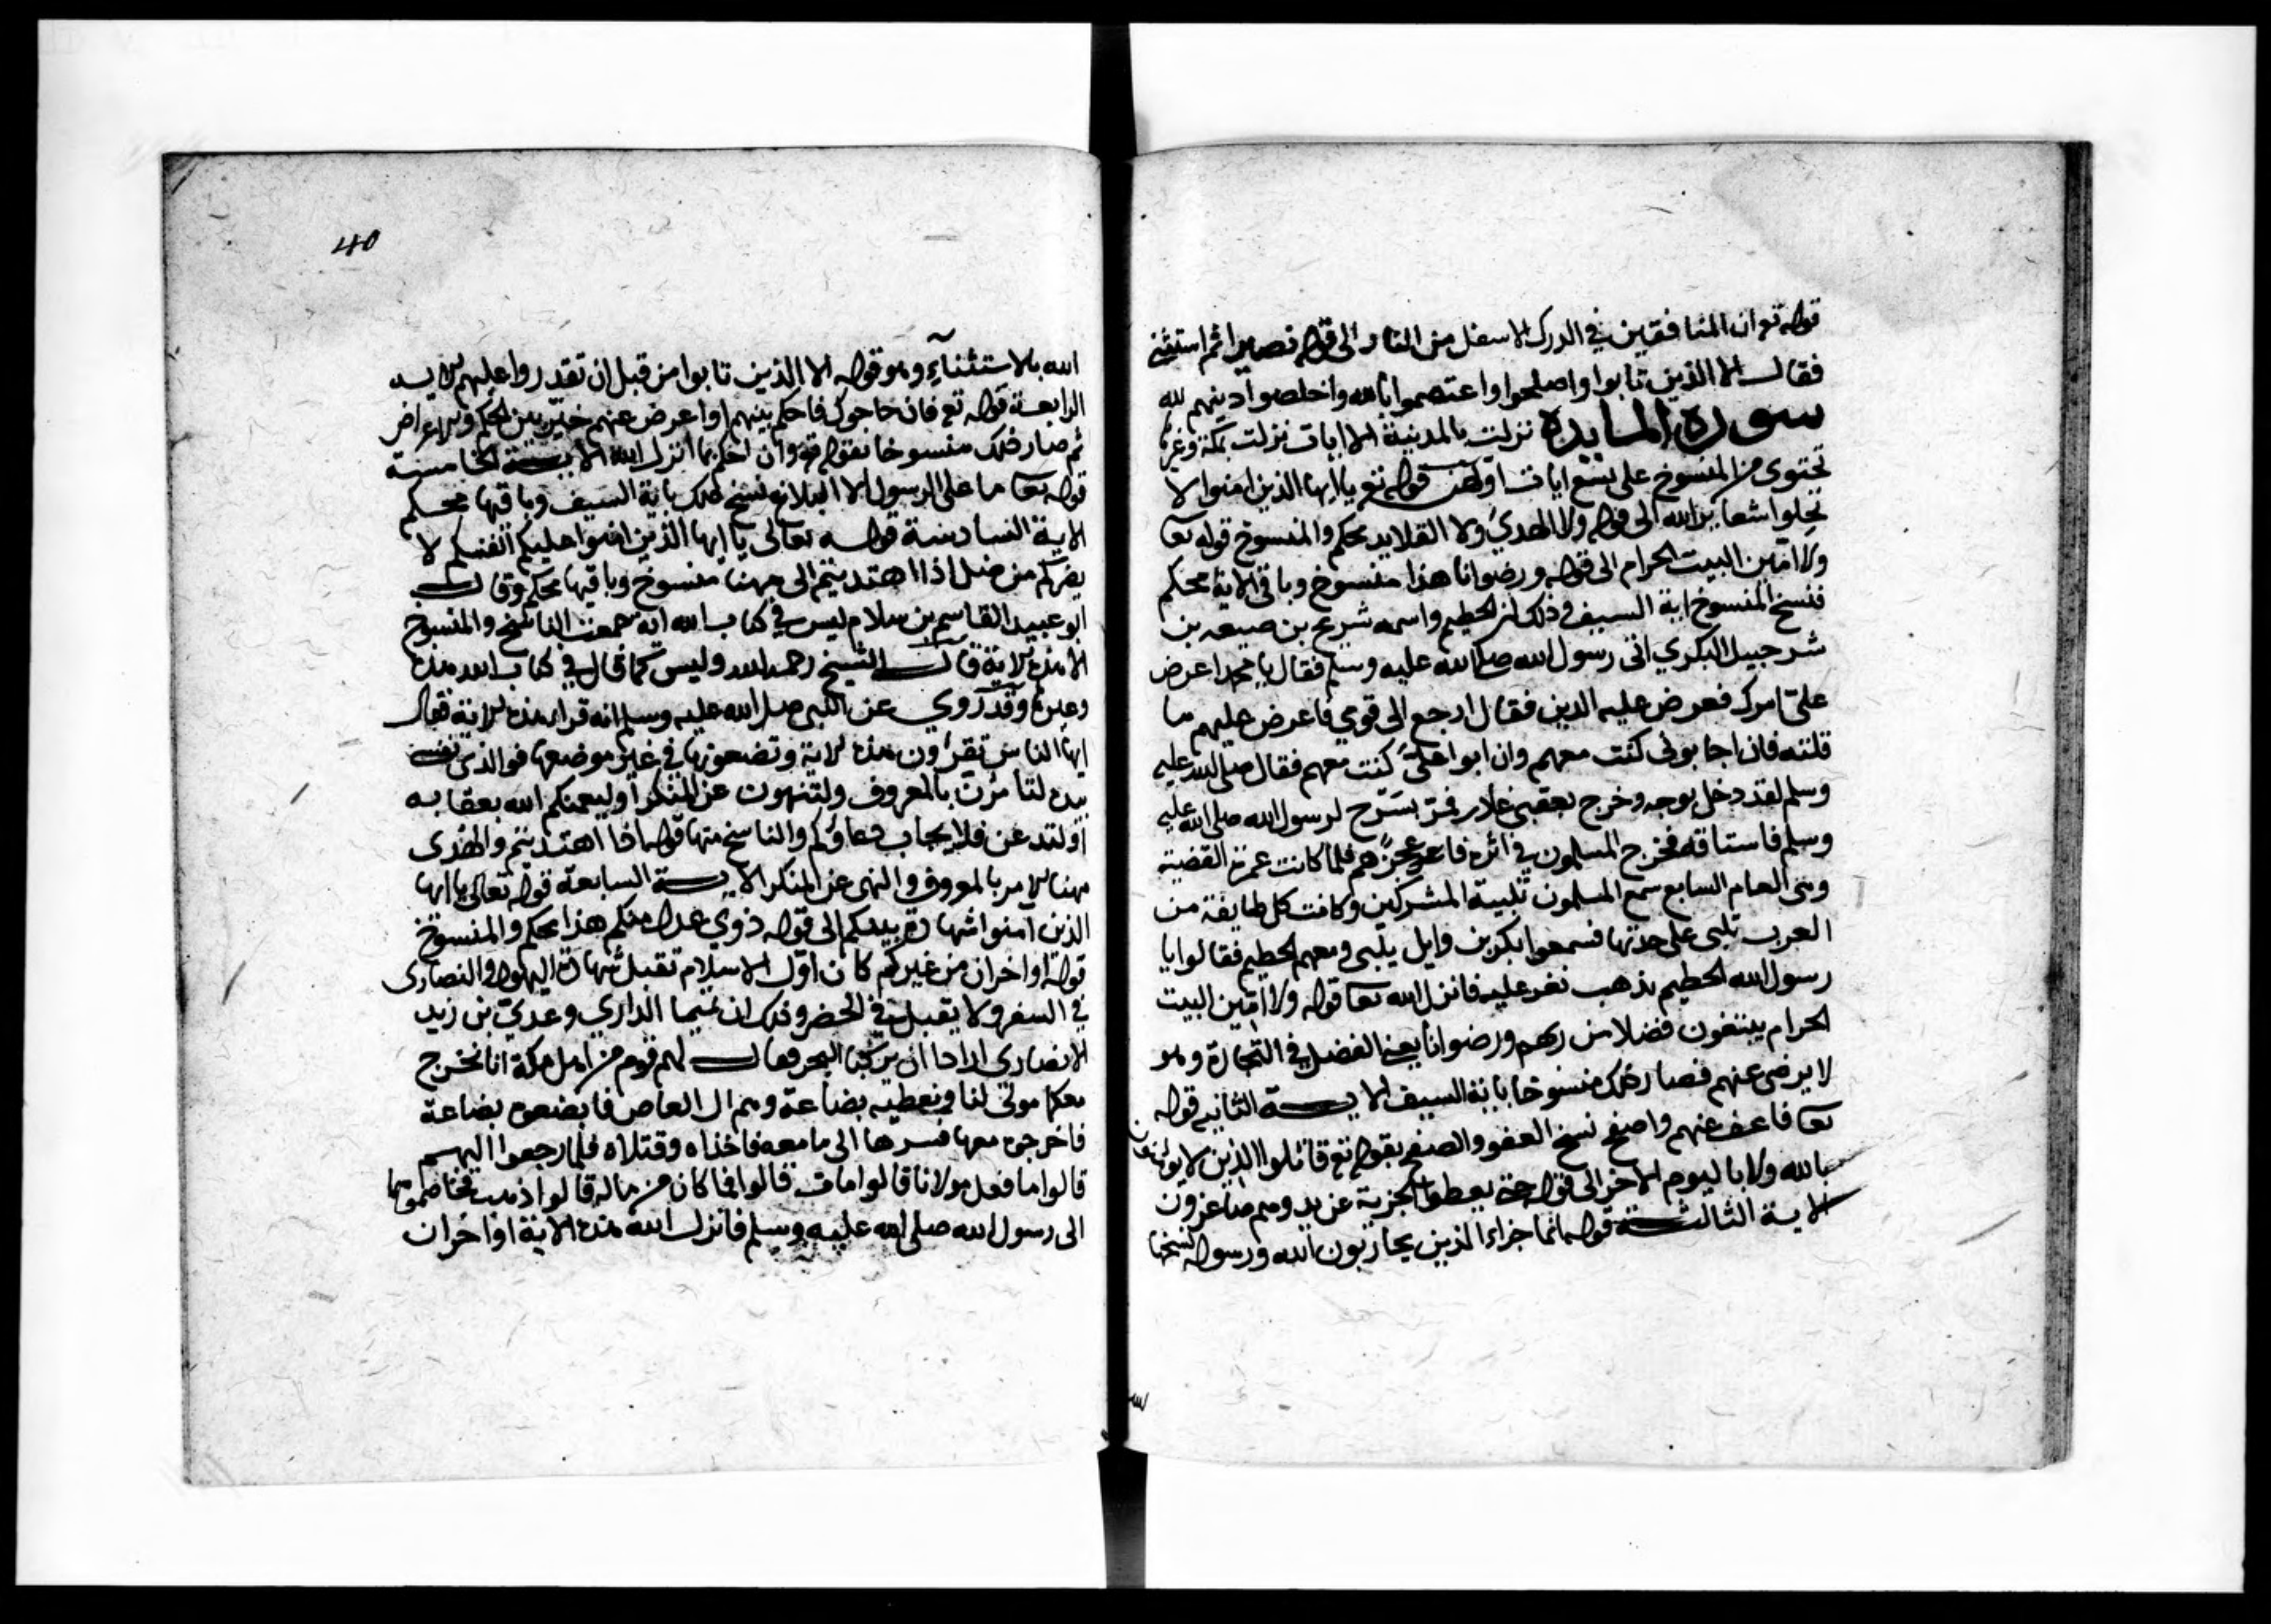 قوله تع ان المنافقين في الدرك الاسفل من النار الى قوله نصيرا ثم استثنى
فقال الا الذين تابوا واصلحوا واعتصموا بالله واخلصوا دينهم لله
سورة المايدة نزلت بالمدينة الا ايات نزلت بمكة وغيرها
تحتوى من المنسوخ على تسع ايات اولهن قوله تع يا ايها الذين امنوا لا
تحلوا شعاير الله الى قوله ولا الهدي ولا القلايد محكم والمنسوخ قوله تعا
ولا امين البيت الحرام الى قوله ورضوانا هذا منسوخ وباقى الاية محكم
فنسخ المنسوخ اية السيف وذلك ان الحطيم واسمه شريح بن ضبيعه بن
شرحبيل البكري اتى رسول الله صلى الله عليه وسلم فقال يا محمد اعرض
علي امرك فعرض عليه الدين فقال ارجع الى قومي فاعرض عليهم ما
قلته فان اجابونى كنت معهم وان ابوا علىّ كنت معهم فقال صلى الله عليه
وسلم لقد دخل بوجه وخرج بعقبى غادر فمر بسرح لرسول الله صلى الله عليه
وسلم فاستاقه فخرج المسلمون في اثره فاعجزهم فلما كانت عمرة القضية
وهى العام السابع سمع المسلمون تلبية المشركين وكانت كل طايفة من
العرب تلبى على حدتها فسمعوا بكر بن وايل يلبى ومعهم الحطيم فقالوا يا
رسول الله الحطيم نذهب نغر عليه فانزل الله تعا قوله ولا امين البيت
الحرام يبتغون فضلا من ربهم ورضوانا يعنى الفضل في التجارة وهو
لا يرضى عنهم فصار ذلك منسوخا باية السيف الاية الثانيه قوله
تعا فاعف عنهم واصفح نسخ العفو والصفح بقوله تع قاتلوا الذين لا يؤمنون
بالله ولا باليوم الاخر الى قوله حتى يعطوا الجزية عن يد وهم صاغرون
الاية الثالثة قوله انما جزاء الذين يحاربون الله ورسوله نسخها
40
الله بالاستثناء وهو قوله الا الذين تابوا من قبل ان تقدروا عليهم الاية
الرابعة قوله تع فان جاءوك فاحكم بينهم او اعرض عنهم خيّر بين الحكم والاعراض
ثم صار ذلك منسوخا بقوله تع وان احكم بما انزل الله الاية الخامسة
قوله تعا ما على الرسول الا البلاغ نسخ ذلك باية السيف وباقيها محكم
الاية السادسة قوله تعالى يا ايها الذين امنوا عليكم انفسكم لا
يضركم من ضل اذا اهتديتم الى ههنا منسوخ وباقيها محكم وقال
ابو عبيد القاسم بن سلام ليس في كتاب الله اية جمعت الناسخ والمنسوخ
الا هذه الاية قال الشيخ رحمه الله وليس كما قال في كتاب الله هذه
وغيرها وقد روي عن النبى صلى الله عليه وسلم انه قرا هذه الاية فقال
ايها الناس تقرأون هذه الاية وتضعونها في غير موضعها فوالذى نفسى
بيده لتامرن بالمعروف ولتنهون عن المنكر او ليعمنكم الله بعقابه
او لتدعن فلا يجاب دعاؤكم والناسخ منها قوله اذا اهتديتم والهدى
ههنا الامر بالمعروف والنهى عن المنكر الاية السابعة قوله تعالى يا ايها
الذين آمنوا شهادة بينكم الى قوله ذوي عدل منكم هذا محكم والمنسوخ
قوله او اخران من غيركم كان اول الاسلام تقبل شهادة اليهود والنصارى
في السفر ولا يقبل في الحضر وذلك ان تميما الداري وعدي بن زيد
الانصارى ارادا ان يركبا البحر فقال لهم قوم من اهل مكة انا نخرج
معكما مولى لنا ونعطيه بضاعة وهم ال العاص فابضعوه بضاعة
فاخرجوه معهما فسرها الى ما معه فاخذاه وقتلاه فلما رجعوا اليهم
قالوا ما فعل مولانا قالوا مات قالوا فما كان من ماله قالوا ذهب فخاصموهما
الى رسول الله صلى الله عليه وسلم فانزل الله هذه الاية او اخران